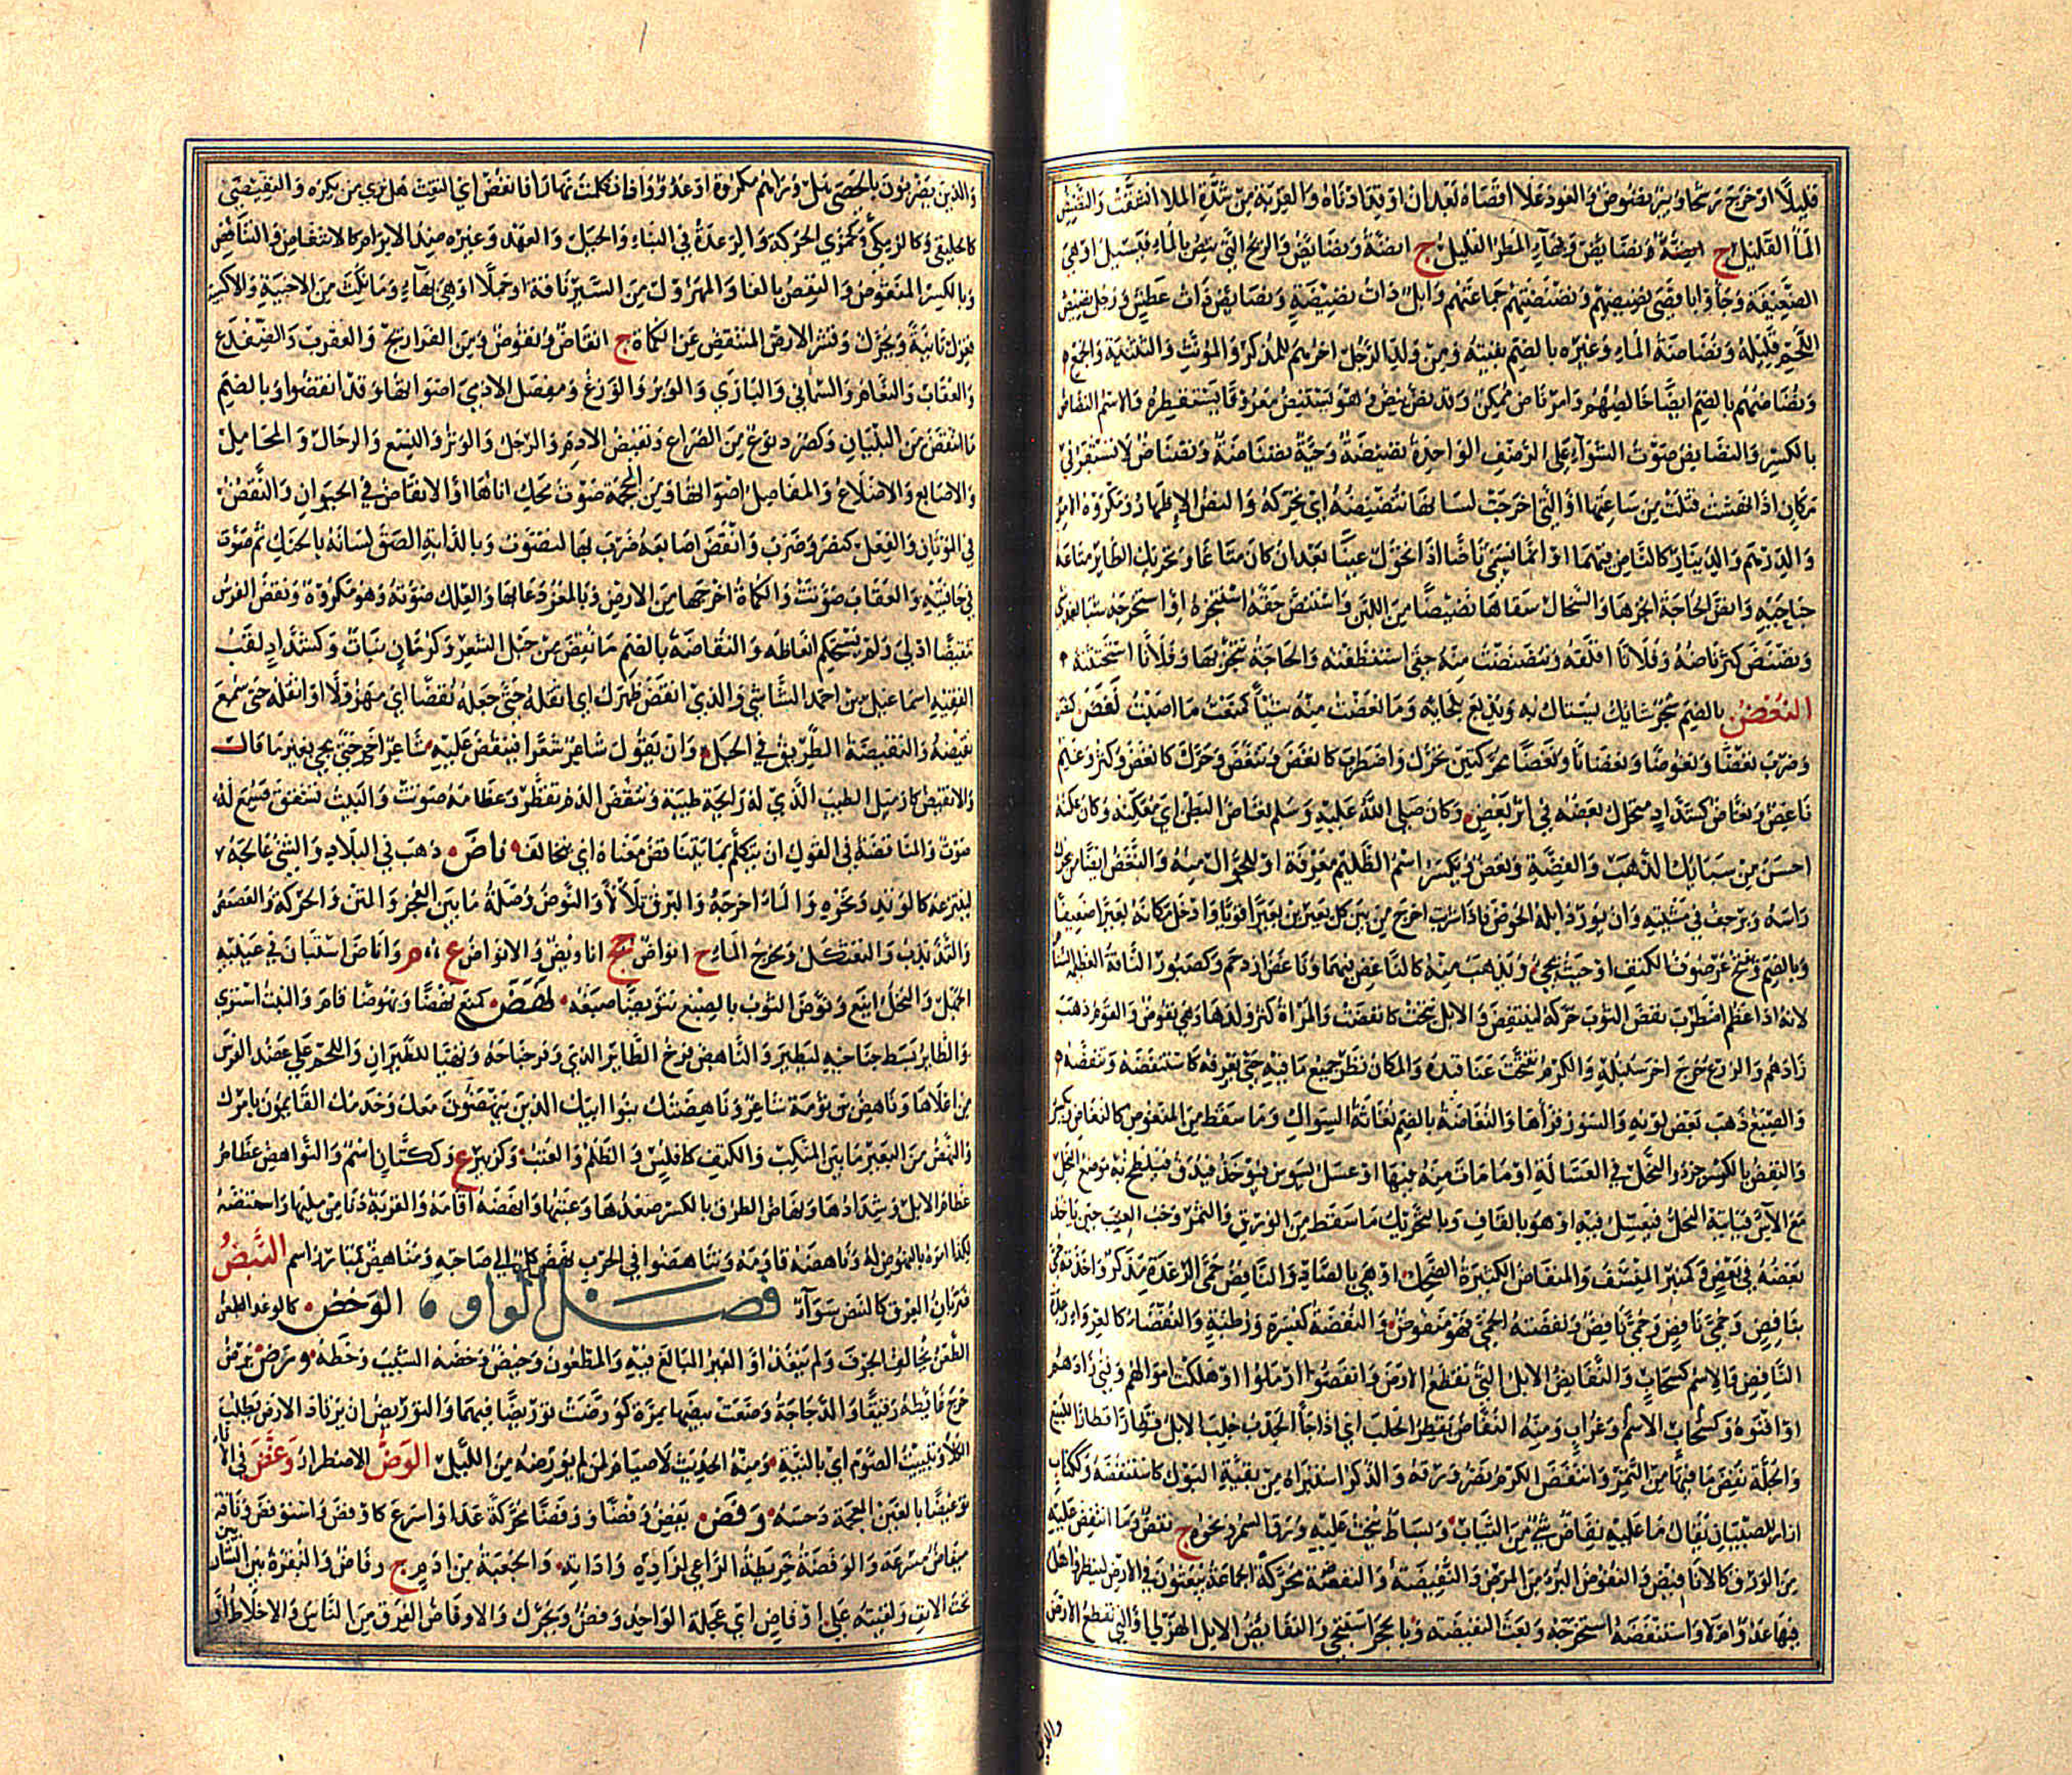 قليلا او خرج رشحا وبئر نضوض والعود غلا اقصاه بعد ان اوقد ادناه والقربة من شدة الملا انشقت والنضيض
الماء القليل ج انضة ونضائض وبهاء المطر القليل ج انضة ونضائض والريح التي بالماء فيسيل او هي
الضعيفة وجاؤا باقصى نضيضهم ونضيضتهم جماعتهم وابل ذات نضيضة ونضائض ذات عطش ورجل نضيض
اللحم قليله ونضاضة الماء وغيره بالضم بقيته ومن ولد الرجل اخرهم للمذكر والمؤنث والتثنية والجمع
ونضاضهم بالضم ايضا خالصهم وامر ناض ممكن وقد نض ينض وهو يستنض معروفا يستقطره والاسم النضاض
بالكسر والنضائض صوت الشواء على الرضف الواحدة نضيضة وحية نضناضة ونضناض لا تستقر في
مكان اذا نهشت قتلت من ساعتها او التي اخرجت لسانها تنضنضه اي تحركه والنض الاظهار ومكروه الامر
والدرهم والدينار كالناض فيهما او انما يسمى ناضا اذا تحول عينا بعد ان كان متاعا وتحريك الطائر
جناحيه وانض الحاجة انجزها والسخال سقاها نضيضا من اللبن واستنض حقه استنجزه او استخرجه شيئا بعد شئ
ونضنض كثر ناضه وفلانا اقلقه وتنضنضت منه حقي استنظفته والحاجة تنجزتها وفلانا استحثثته
النغض بالضم شجر شائك يستاك به ويدبغ بلحائه وما نعضت منه شيئا كمنعت ما اصبت نغض كنصر
وضرب نغضا ونغوضا ونغضانا ونغضا محركتين تحرك واضطرب كانغض وتنغض وحرك كانغض وكثر وغيم
ناغض ونغاض كشداد متحرك بعضه في اثر بعض وكان صلى الله عليه وسلم نغاض البطن اي معكنه وكان عكنه
احسن من سبايك الذهب والفضة ونغض ويكسر اسم الظليم معرفة او للجوال منه والنغض ايضا من يحرك
راسه ويرجف في مشيته وان يورد ابله الحوض فاذا شربت اخرج من بين كل بعيرين بعيرا قويا وادخل مكانه بعيرا ضعيفا
وبالضم ويفتح غرضوف الكتف او حيث يجيء ويذهب منه كالناغض فيهما وناغض ازدحم وكصبور الناقة العظيمة السنام
لانه اذا عظم اضطرب نفض الثوب حركه لينتفض والابل نتجت كانفضت والمراة كثر ولدها وهي نفوض والقوم ذهب
زادهم والزرع خرج اخر سنبله والكرم تفتحت عناقيده والمكان نظر جميع ما فيه حتى يعرفه كاستنفضه وتنفضه
والصبغ ذهب بعض لونه والسور قراها والنفاضة بالضم نفاثة السواك وما سقط من المنفوض كالنفاض ويكسر
والنفض بالكسر خرء النحل في العسالة او ما مات منه فيها او عسل يسوس فيؤخذ فيدق فيلطخ به موضع النحل
مع الآس فيأتيه النحل فيعسل فيه او هو بالقاف وبالتحريك ما سقط من الورق والثمر وحب العنب حين ياخذ
بعضه في بعض وكمنبر المنسف والمنفاض الكثيرة الضحك او هي بالصاد والنافض حمى الرعدة مذكر واخذته حمى
بنافض وحمى نافض وحمى نافض ونفضته الحمى فهو منفوض والنفضة كبسرة ورطبة والنفضاء كالعرواء رعدة
النافض والاسم كسحاب والنفائض الابل التي تقطع الارض وانفضوا ارملوا او هلكت اموالهم وفني زادهم
او افنوه وكسحاب الاسم وغراب ومنه النفاض يقطر الجلب اي اذا جاء الجدب جلبت الابل قطارا قطارا للبيع
والجلة نفض ما فيها من التمر وانتفض الكرم نضر ورقه والذكر استبراه من بقية البول كاستنفضه وككتاب
ازار للصبيان يقال ما عليه نفاض شئ من الثياب وبساط ينحت عليه ورق السمر ونحوه ج نفض وما انتفض عليه
من الورق كالانافيض والنفوض البرء من المرض والنفيضة والنفضة محركة الجماعة يبعثون في الارض لينظروا هل
فيها عدو ام لا واستنفضه استخرجه وبعث النفيضة وبالحجر استنجى والنفائض الابل الهزلى او التي تقطع الارض
والذين
والذين يضربون بالحصى هل وراءهم مكروه او عدو واذا تكلمت نهارا فانفض اي التفت هل ترى من تكره والنفيضى
كالخليفى وكالزمكى وكجمزى الحركة والرعدة في البناء والحبل والعهد وغيره ضد الابرام كالانتقاض والتناقض
وبالكسر المنقوض والنقض بالفا والمهزول من السير ناقة او جملا او هي بهاء وما نكث من الاخبية والاكسية
فغزل ثانية ويحرك وقشر الارض المنتقض عن الكماة ج انقاض ونقوض ومن الفراريج والعقرب والضفدع
والعقاب والنعام والسماني والبازي والوبر والوزغ ومفصل الادمي اصواتها وقد انقضوا وبالضم
ما انتقض من البنيان وكصرد نوع من الصراع ونقيض الادم والرحل والوتر والنسع والرحال والمحامل
والاصابع والاضلاع والمفاصل اصواتها ومن المحجمة صوت مصك اياها او الانقاض في الحيوان والنقض
في الموتان والفعل كنصر وضرب وانقض اصابعه ضرب بها لتصوت وبالدابة الصق لسانه بالحنك ثم صوت
في حافتيه والعقاب صوتت والكماة اخرجها من الارض وبالمعز دعا بها والعلك صوته وهو مكروه ونقض الفرس
تنقيضا ادلى ولم يستحكم انعاظه والنقاضة بالضم ما نقض من حبل الشعر وكرمان نبات وكشداد لقب
الفقيه اسماعيل بن احمد الشاشي والذي انقض ظهرك اي اثقله حتى جعله نقضا اي مهزولا او اثقله حتى سمع
نقيضه والنقيضة الطريق في الجبل وان يقول شاعر شعرا فينقض عليه شاعر اخر حتى يجيء بغير ما قال
والانقيض كازميل الطيب الذي له رايحة طيبة وتنقض الدم تقطر وعظامه صوتت والبيت تشقق فسمع له
صوت والمناقضة في القول ان يتكلم بما يتناقض معناه اي يتخالف ناض ذهب في البلاد والشئ عالجه
لينزعه كالوتد ونحوه والماء اخرجه والبرق تلالا والنوض وصلة ما بين العجز والمتن والحركة والعصعص
والتذبذب والتعثكل ومخرج الماء ج انواض جج اناويض والانواض ع م واناض استبان في عينيه
الجهل والنخل اينع ونوض الثوب بالصبغ تنويضا صبغه نهض كمنع نهضا ونهوضا قام والنبت استوى
والطاير بسط جناحيه ليطير والناهض فرخ الطاير الذي وفر جناحه وتهيا للطيران واللحم على عضد الفرس
من اعلاها وناهض بن ثومة شاعر وناهضتك بنوا ابيك الذين ينهضون معك وخدمك القايمون بامرك
والنهض من البعير ما بين المنكب والكتف كافلس والظلم والعتب وكزبير ع وككتان اسم والنواهض عظام
الابل وشدادها ونهاض الطرق بالكسر صعدها وعتبها وانهضه اقامه والقربة دنا من مليها واستنهضه
لكذا امره بالنهوض له وناهضه قاومه وتناهضوا في الحرب نهض كل الى صاحبه ومناهض كمبارز اسم النبض
ضربان العرق كالنبض سواء فصل الواو الوخض كالوعد الطعن
الطعن يخالف الجوف ولم ينفذ او الغير المبالغ فيه والمطعون وخيض ووخضه الشيب وخطه ورض يرض
خرج غائطه رقيقا والدجاجة وضعت بيضها بمرة كورضت توريضا فيهما والتوريض ان يرتاد الارض يطلب
الكلا وتبييت الصوم اي بالنية ومنه الحديث لا صيام لمن لم يورضه من الليل الوض الاضطرار وغض في الاناء
توغيضا بالغين المعجمة دحسه وفض يفض وفضا ووفضا محركة عدا واسرع كاوفض واستوفض وناقة
ميفاض مسرعة والوفضة خريطة الراعي لزاده واداته والجعبة من ادم ج وفاض والنقرة بين الشاربين
تحت الانف ولقيته على اوفاض اي عجلة الواحد وفض ويحرك والاوفاض الفرق من الناس والاخلاط او